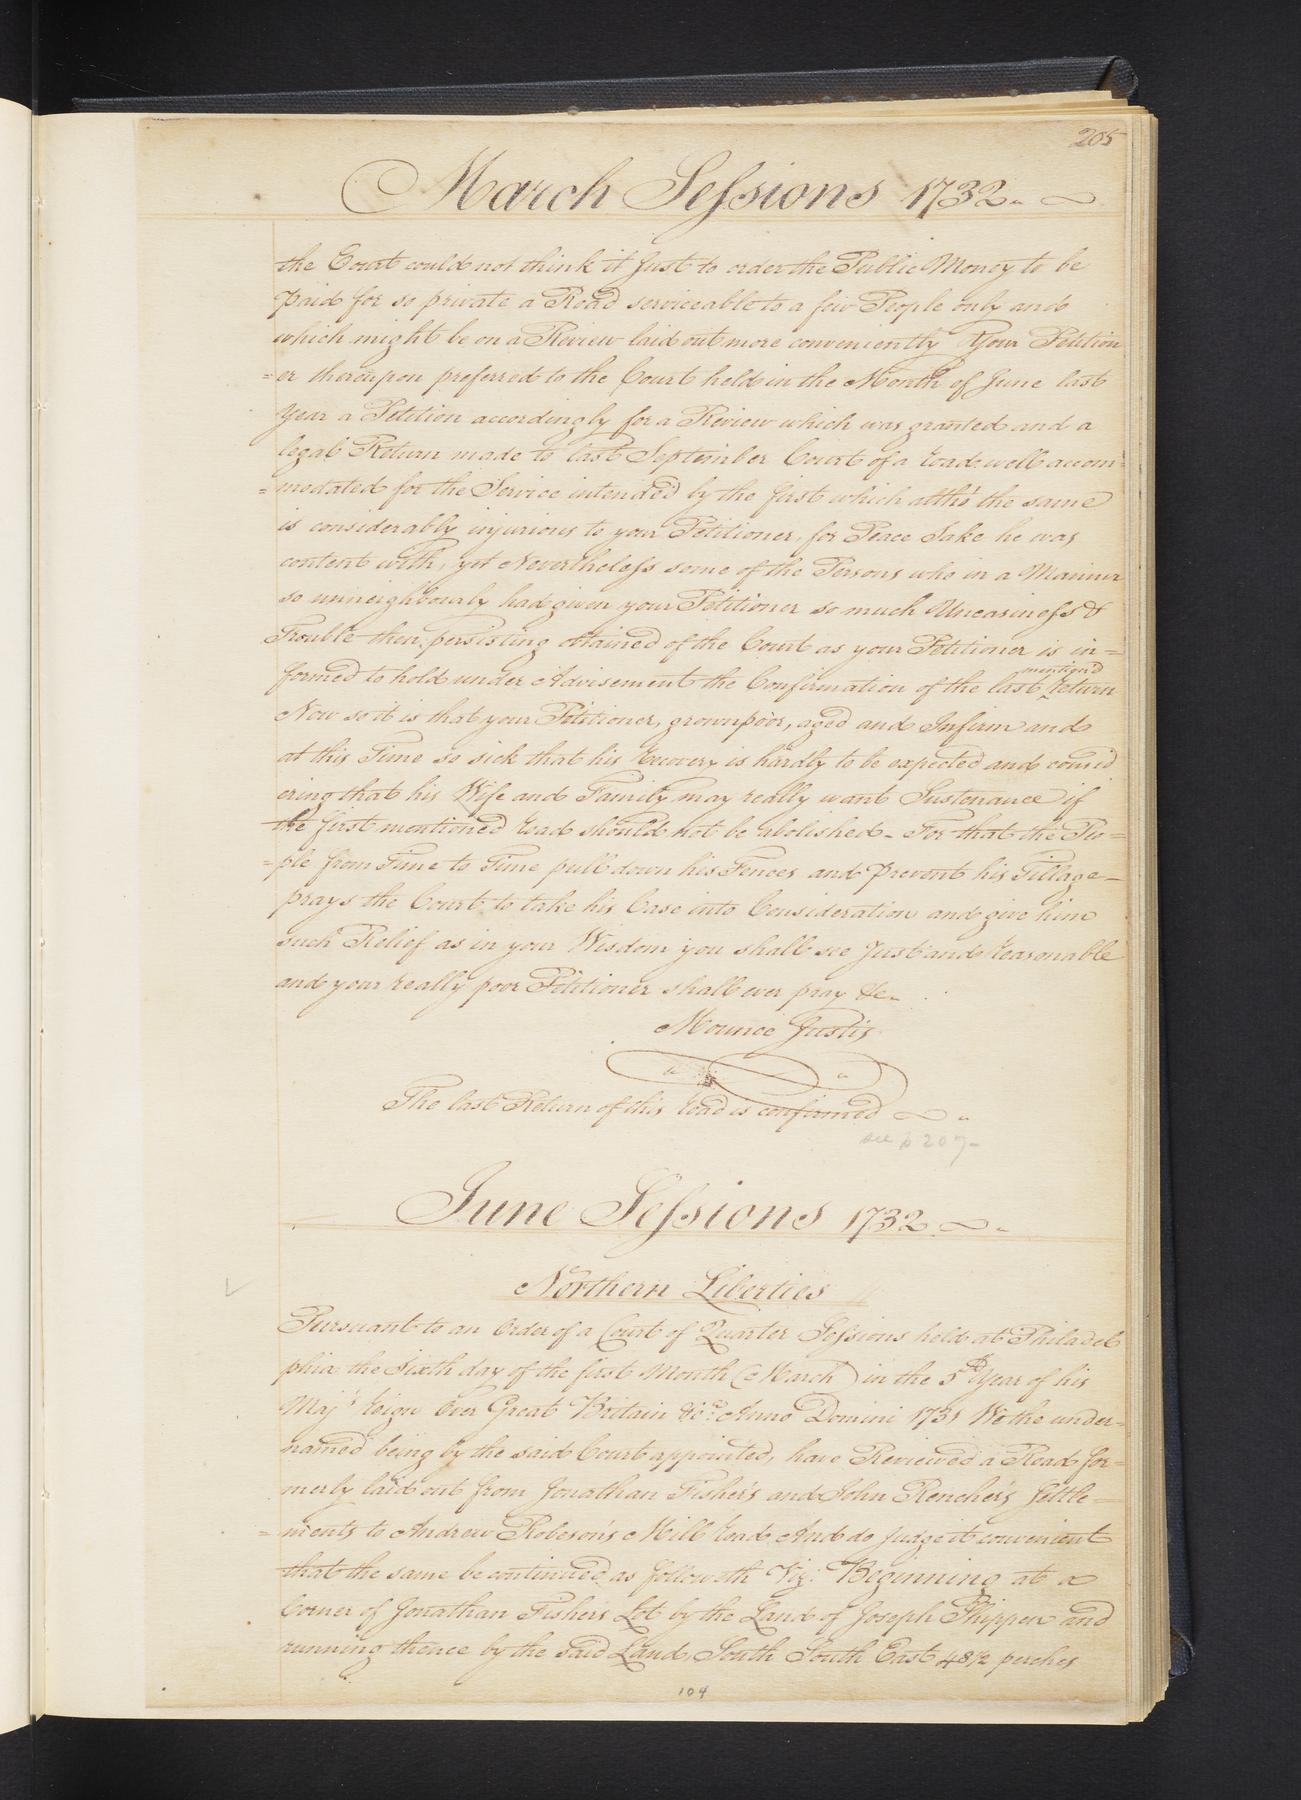 205
March Sessions 1732.
the Court could not think it Just to order the Public Money to be
Paid for so private a Road serviceable to a few People only and
which might be on a Review laid out more conveniently Your Petition
=er thereupon preferred to the Court held in the Month of June last
Year a Petition accordingly for a Review which was granted and a
legal Return made to last September Court of a road well accom=
=modated for the Service intended by the first which altho' the same
is considerably injurious to your Petitioner, for Peace Sake he was
content with, yet Nevertheless some of the Persons who in a Manner
so unneighbourly had given your Petitioner so much Uneasiness &
Trouble then persisting obtained of the Court as your Petitioner is in=
mention'd
formed to hold under Advisement the Confirmation of the last Return
Now so it is that your Petitioner, grown poor, aged and Infirm and
at this Time so sick that his Recovery is hardly to be expected and consid
ering that his Wife and Family may really want Sustenance if
the first mentioned road should not be abolished. For that the Peo=
=ple from Time to Time pull down his Fences and Prevent his Tillage—
prays the Court to take his Case into Consideration and give him
such Relief as in your Wisdom you shall see Just and reasonable
and your really poor Petitioner shall ever pray &c.
Mounce Justis
The last Return of this road is confirmed
see p 207-
June Sessions 1732.
Northern Liberties
Pursuant to an Order of a Court of Quarter Sessions held at Philadel
phia the Sixth day of the first Month (March) in the 5th Year of his
Maj's reign Over Great Britain &ca Anno Domini 1731 We the under=
named being by the said Court appointed, have Reviewed a Road for=
merly laid out from Jonathan Fisher's and John Rencher's Settle=
=ments to Andrew Robeson's Mill road And do Judge it convenient
that the same be continued as followeth Viz: Beginning at a
Corner of Jonathan Fishers Lot by the Land of Joseph Shippen and
running thence by the said Land, South South East 48 1/2 perches
104